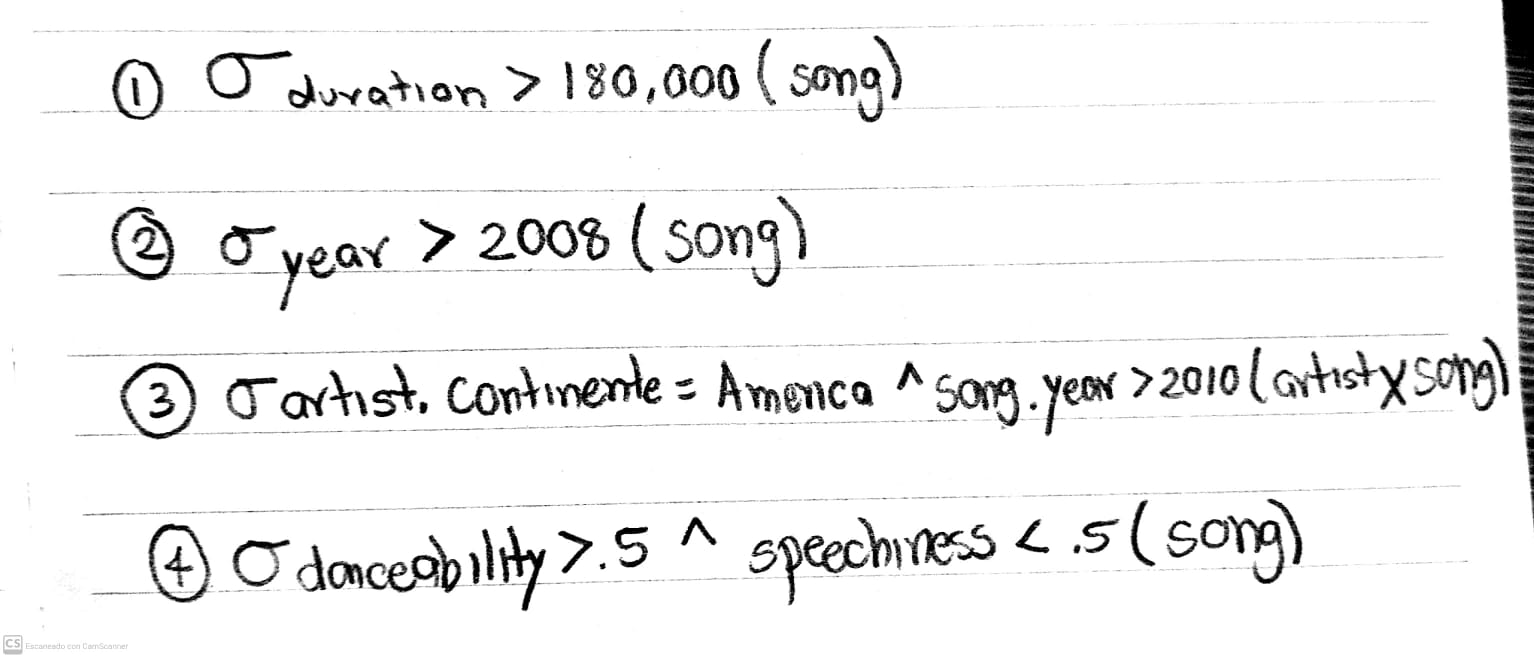 ① σ duration > 180,000 (song)
② σ year > 2008 (song)
③ σ artist. continente = America ^ song.year >2010 (artist x song)
④ σ danceability >.5 ^ speechiness < .5 (song)
CS Escaneado con CamScanner